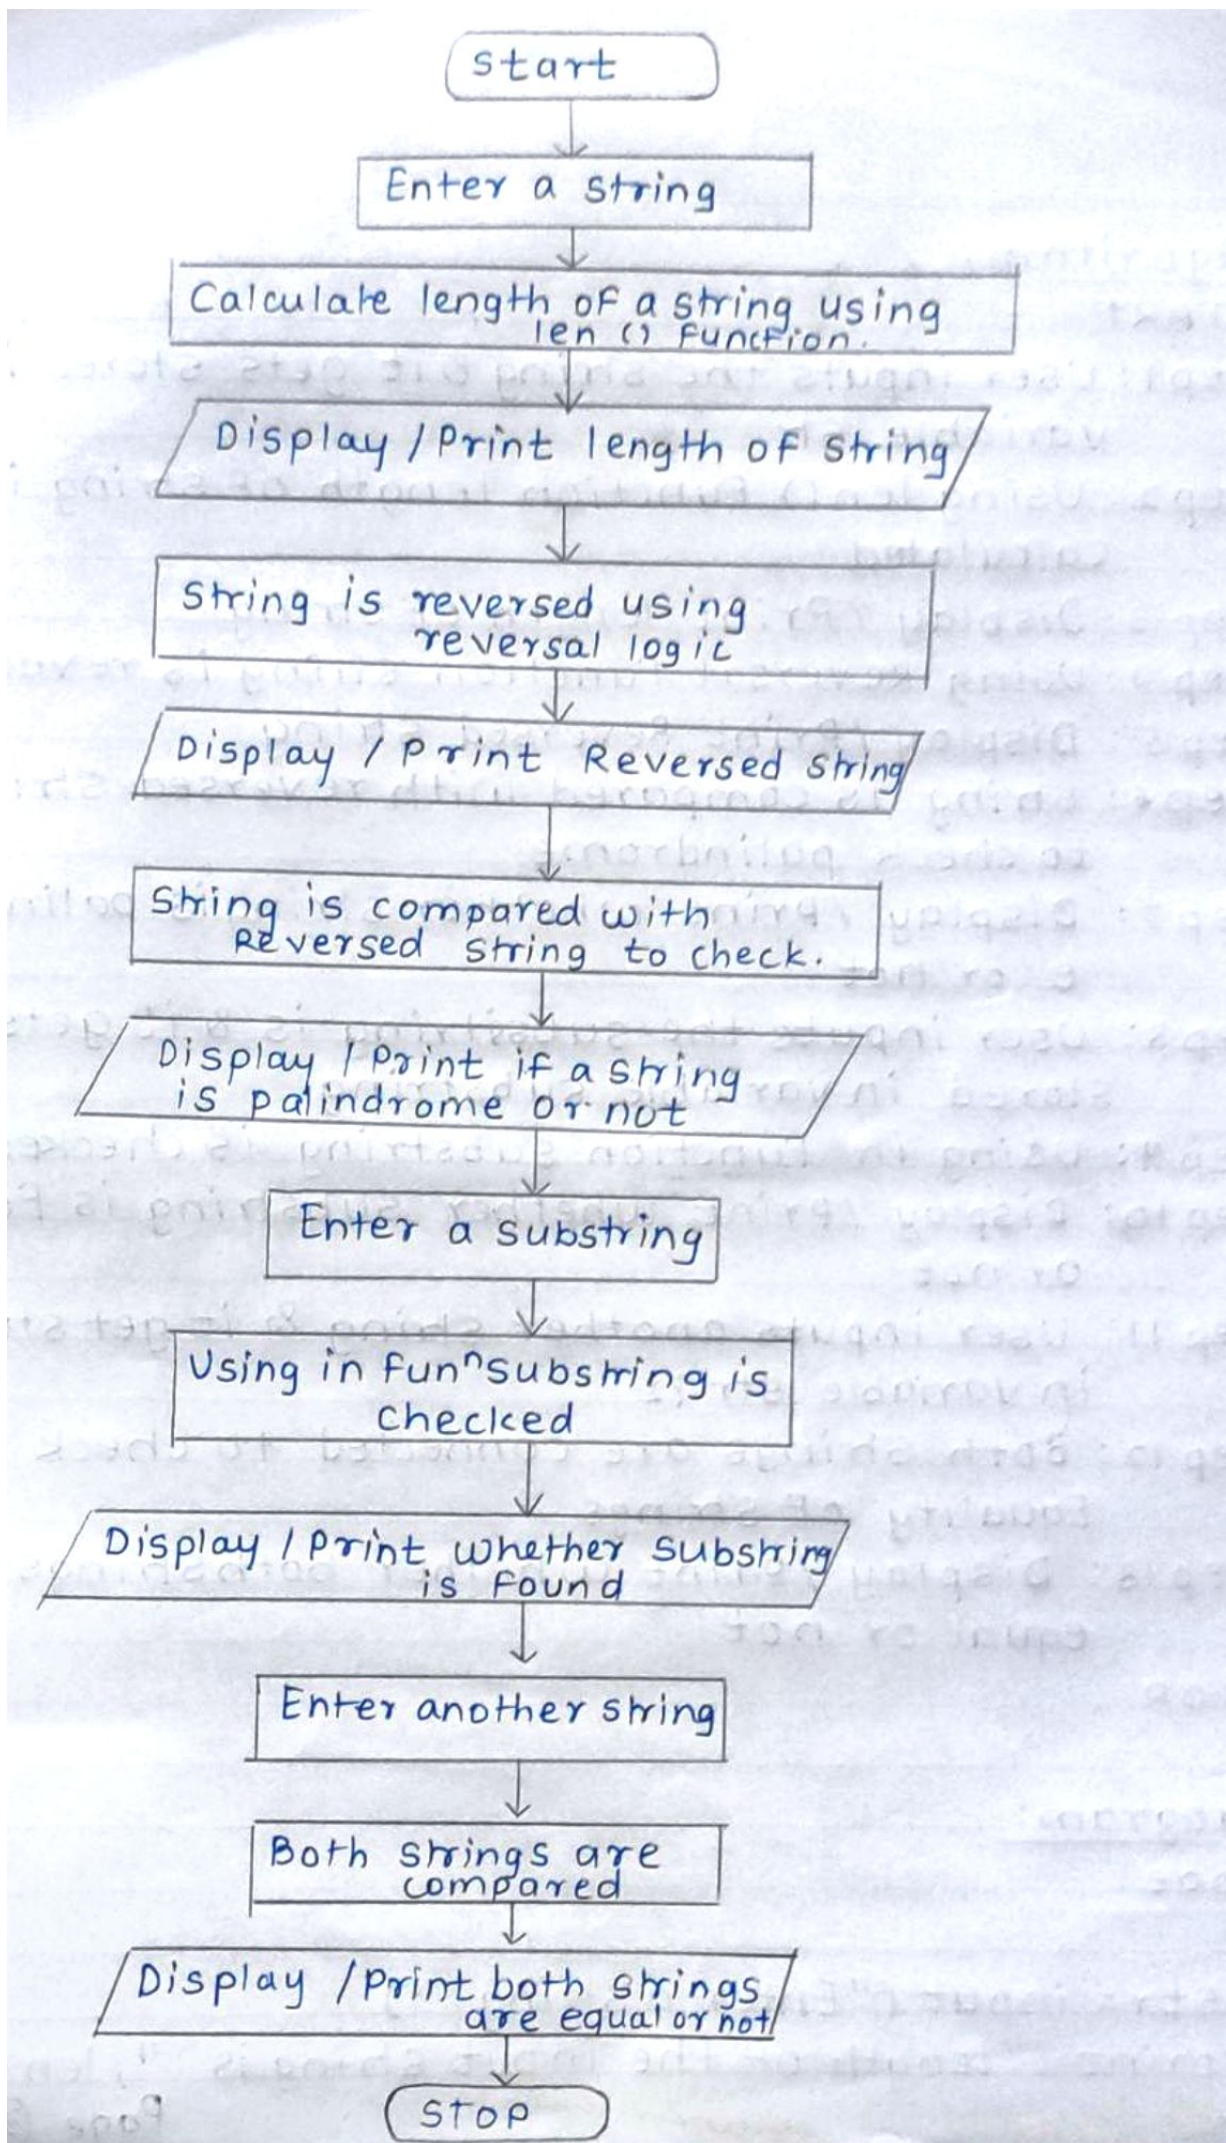 Start
Enter a string
Calculate length of a string using
len () function.
Display / Print length of string
String is reversed using
reversal logic
Display / Print Reversed string
String is compared with
Reversed string to check.
Display / Print if a string
is palindrome or not
Enter a substring
Using in funⁿ substring is
checked
Display / Print whether substring
is found
Enter another string
Both strings are
compared
Display / Print both strings
are equal or not
STOP